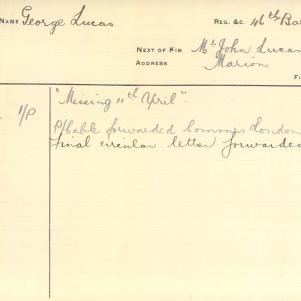 NAME George Lucas REG. &C. 46th Ba
NEXT OF KIN Mr John Lucas
ADDRESS Marion
F
1/P "Missing 11th April".
P/Cable forwarded Commrs London
Final circular letter forwarded